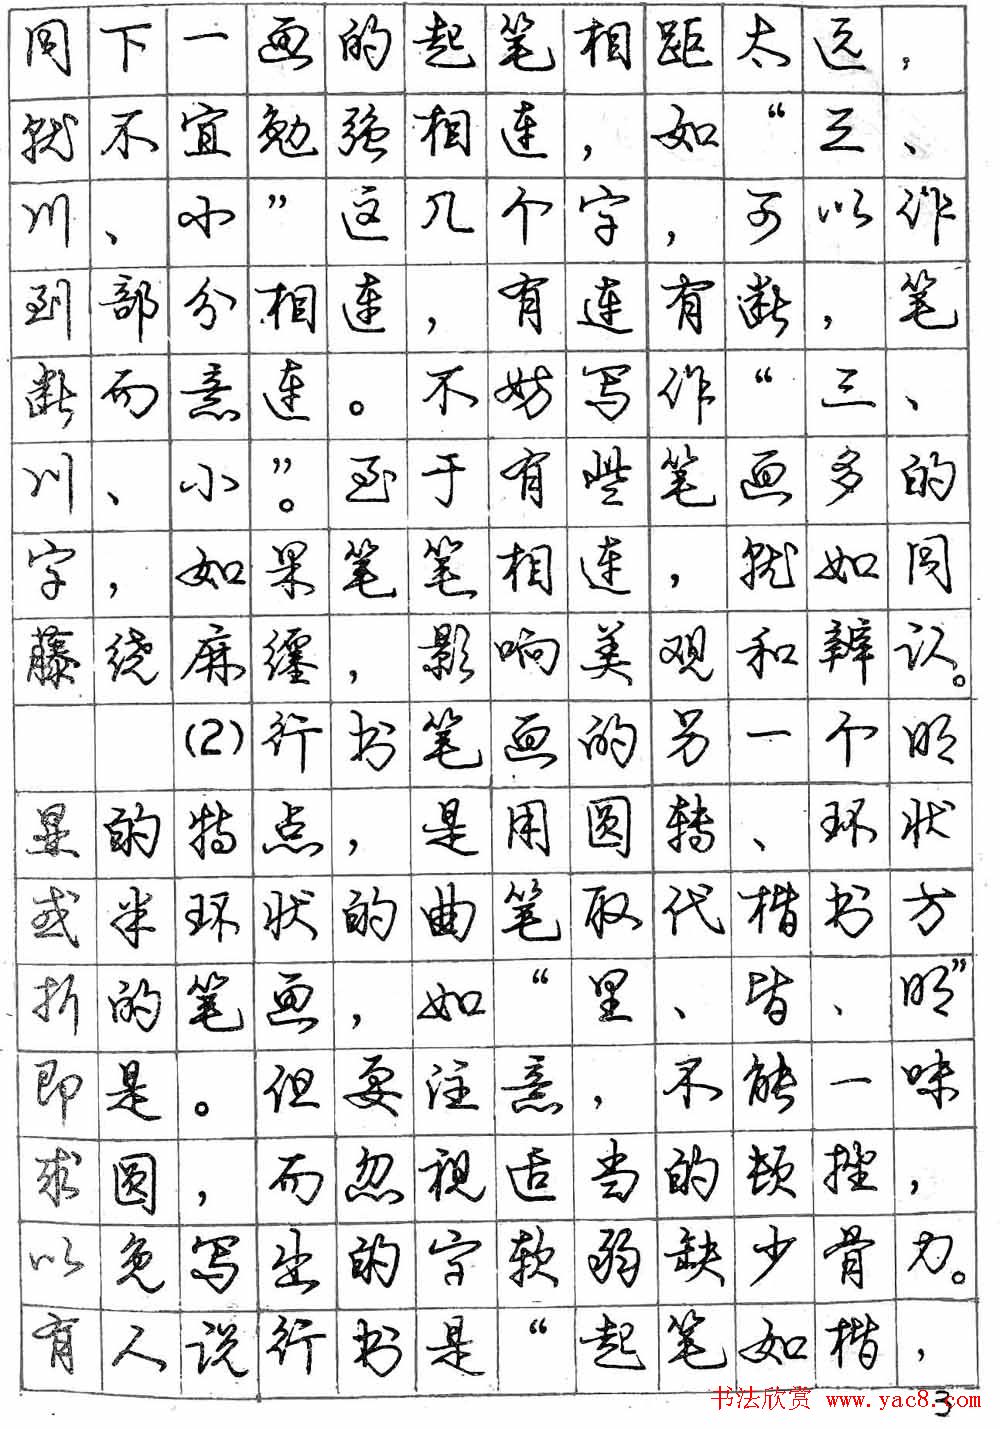 同下一画的起笔相距太远，
就不宜勉强相连，如“三、
川、小”这几个字，可以作
到部分相连，有连有断，笔
断而意连。不妨写作“三、
川、小”。至于有些笔画多的
字，如果笔笔相连，就如同
藤绕麻缠，影响美观和辨认。
(2)行书笔画的另一个明
显的特点，是用圆转、环状
或半环状的曲笔取代楷书方
折的笔画，如“里、皆、明”
即是。但要注意，不能一味
求圆，而忽视适当的顿挫，
以免写出的字软弱缺少骨力。
有人说行书是“起笔如楷，
3
书法欣赏 www.yac8.com